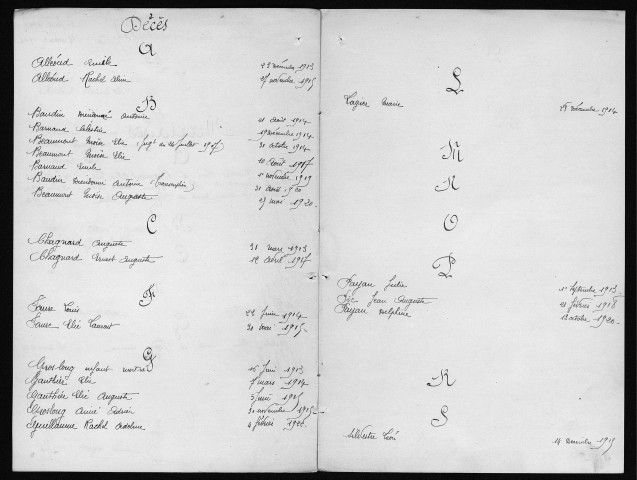 Décès
A
Alléoud Emile 23 décembre 1913
Alléoud Rachel 27 novembre 1915
B
Baudin Antoine 21 août 1914
Barnaud Célestin 19 novembre 1914
Beaumont Moïse Elie (jugt du 26 juillet 1917) 30 octobre 1914
Beaumont Moïse Elie 10 août 1917
Barnaud Emile 1er novembre 1919
Baudin Antoine 21 avril 1920
Beaumont Auguste 17 mai 1920
C
Chagnard Auguste 31 mars 1913
Chagnard Ernest Auguste 12 avril 1917
F
Faure Louis 22 juin 1914
Faure Elie Laurent 20 mai 1915
G
Groslong enfant mort né 15 juin 1913
Gauthier Elie 7 mars 1914
Gauthier Elie Auguste 5 juin 1915
Groslong Aimé 30 novembre 1915
Guillaume Rachel Adeline 4 février 1920
L
Marie décembre 1914
M
N
O
P
Payan Julie 1er septembre 1913
Pic Jean Auguste 21 février 1918
Payan Delphine 13 octobre 1920
R
S
Silvestre Léon 14 décembre 1915